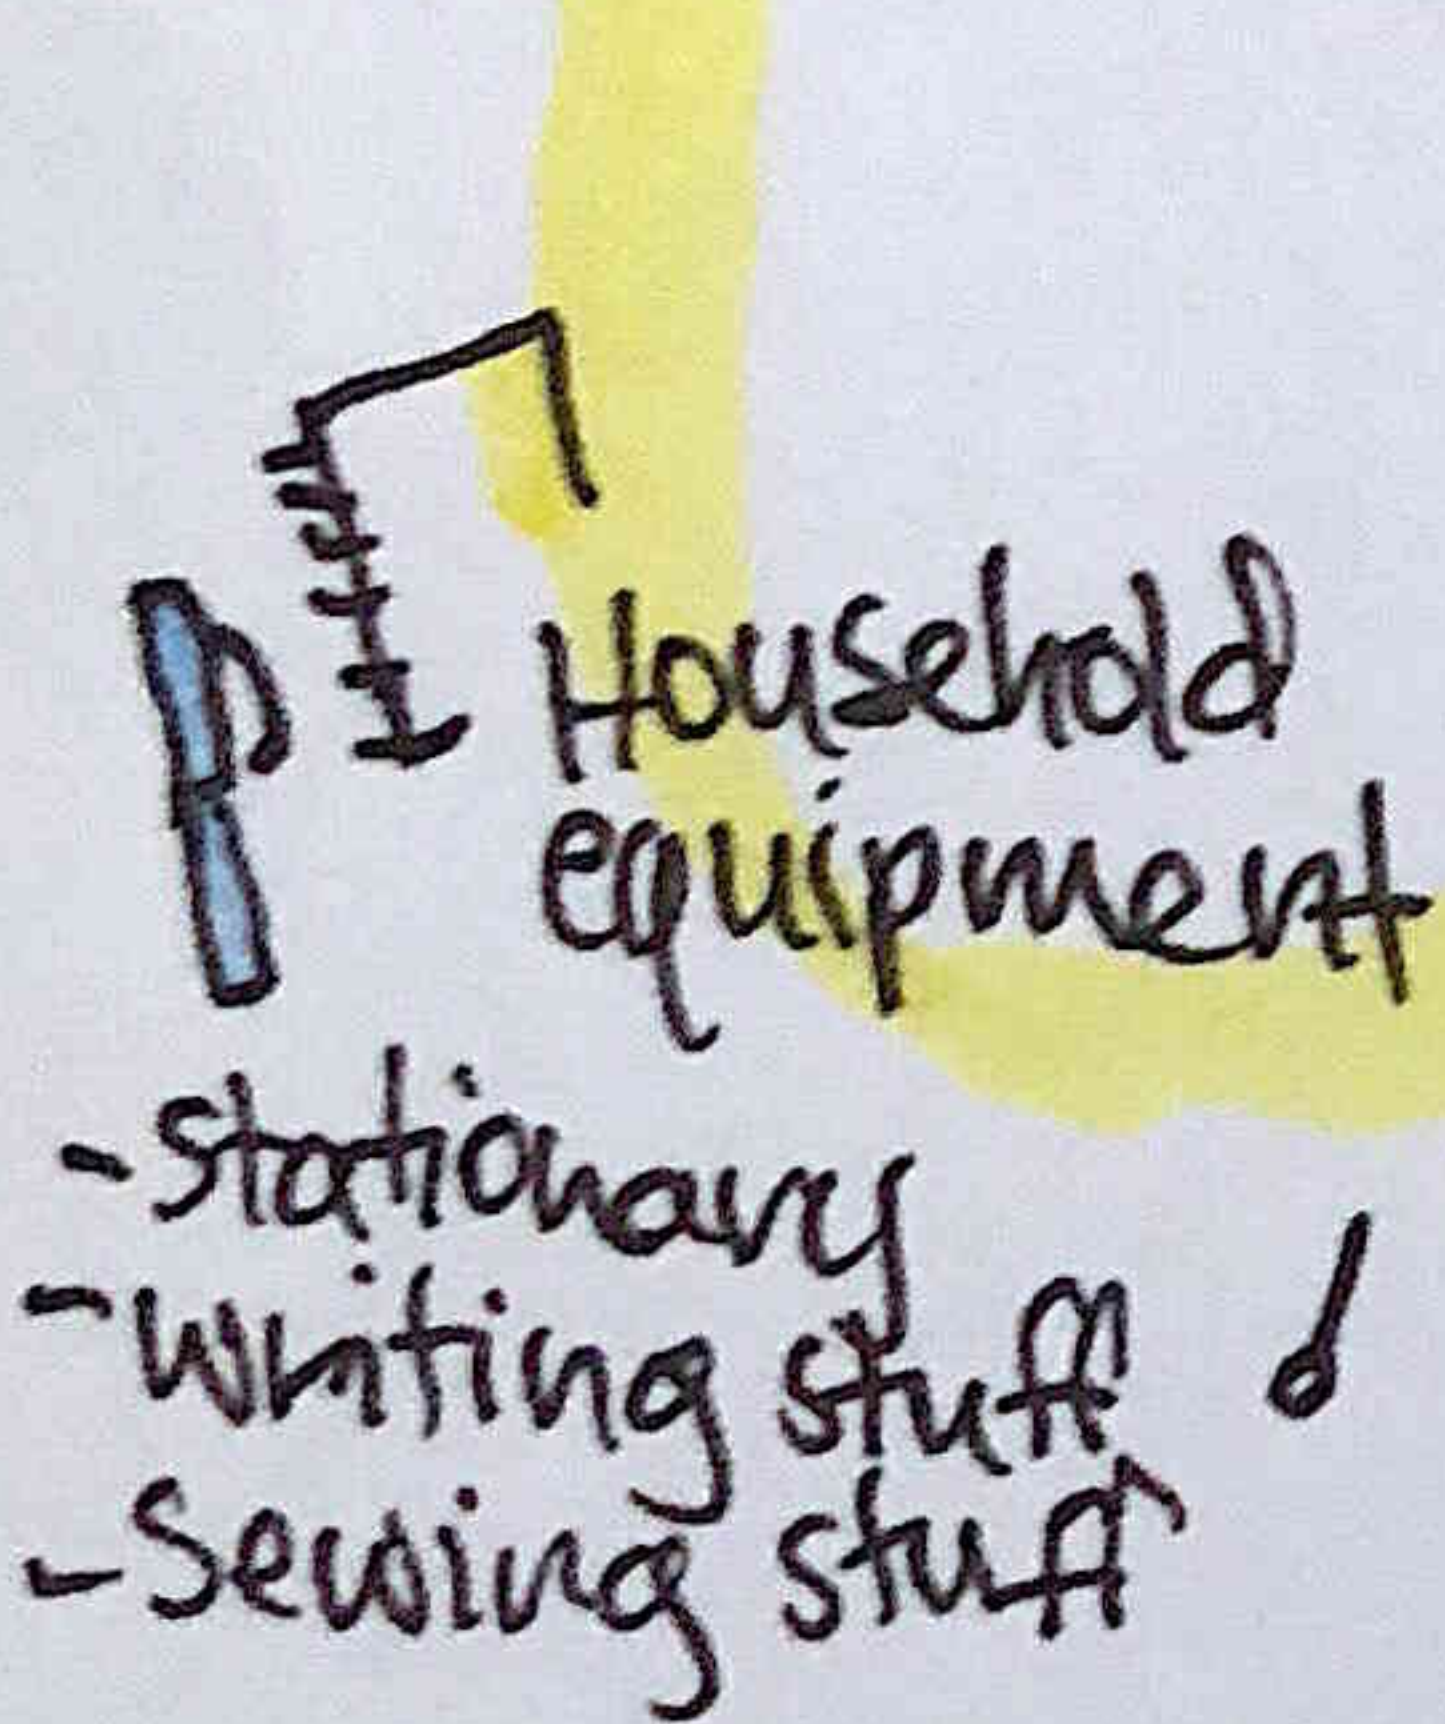 Household
equipment
- stationary
- writing stuff
- Sewing stuff